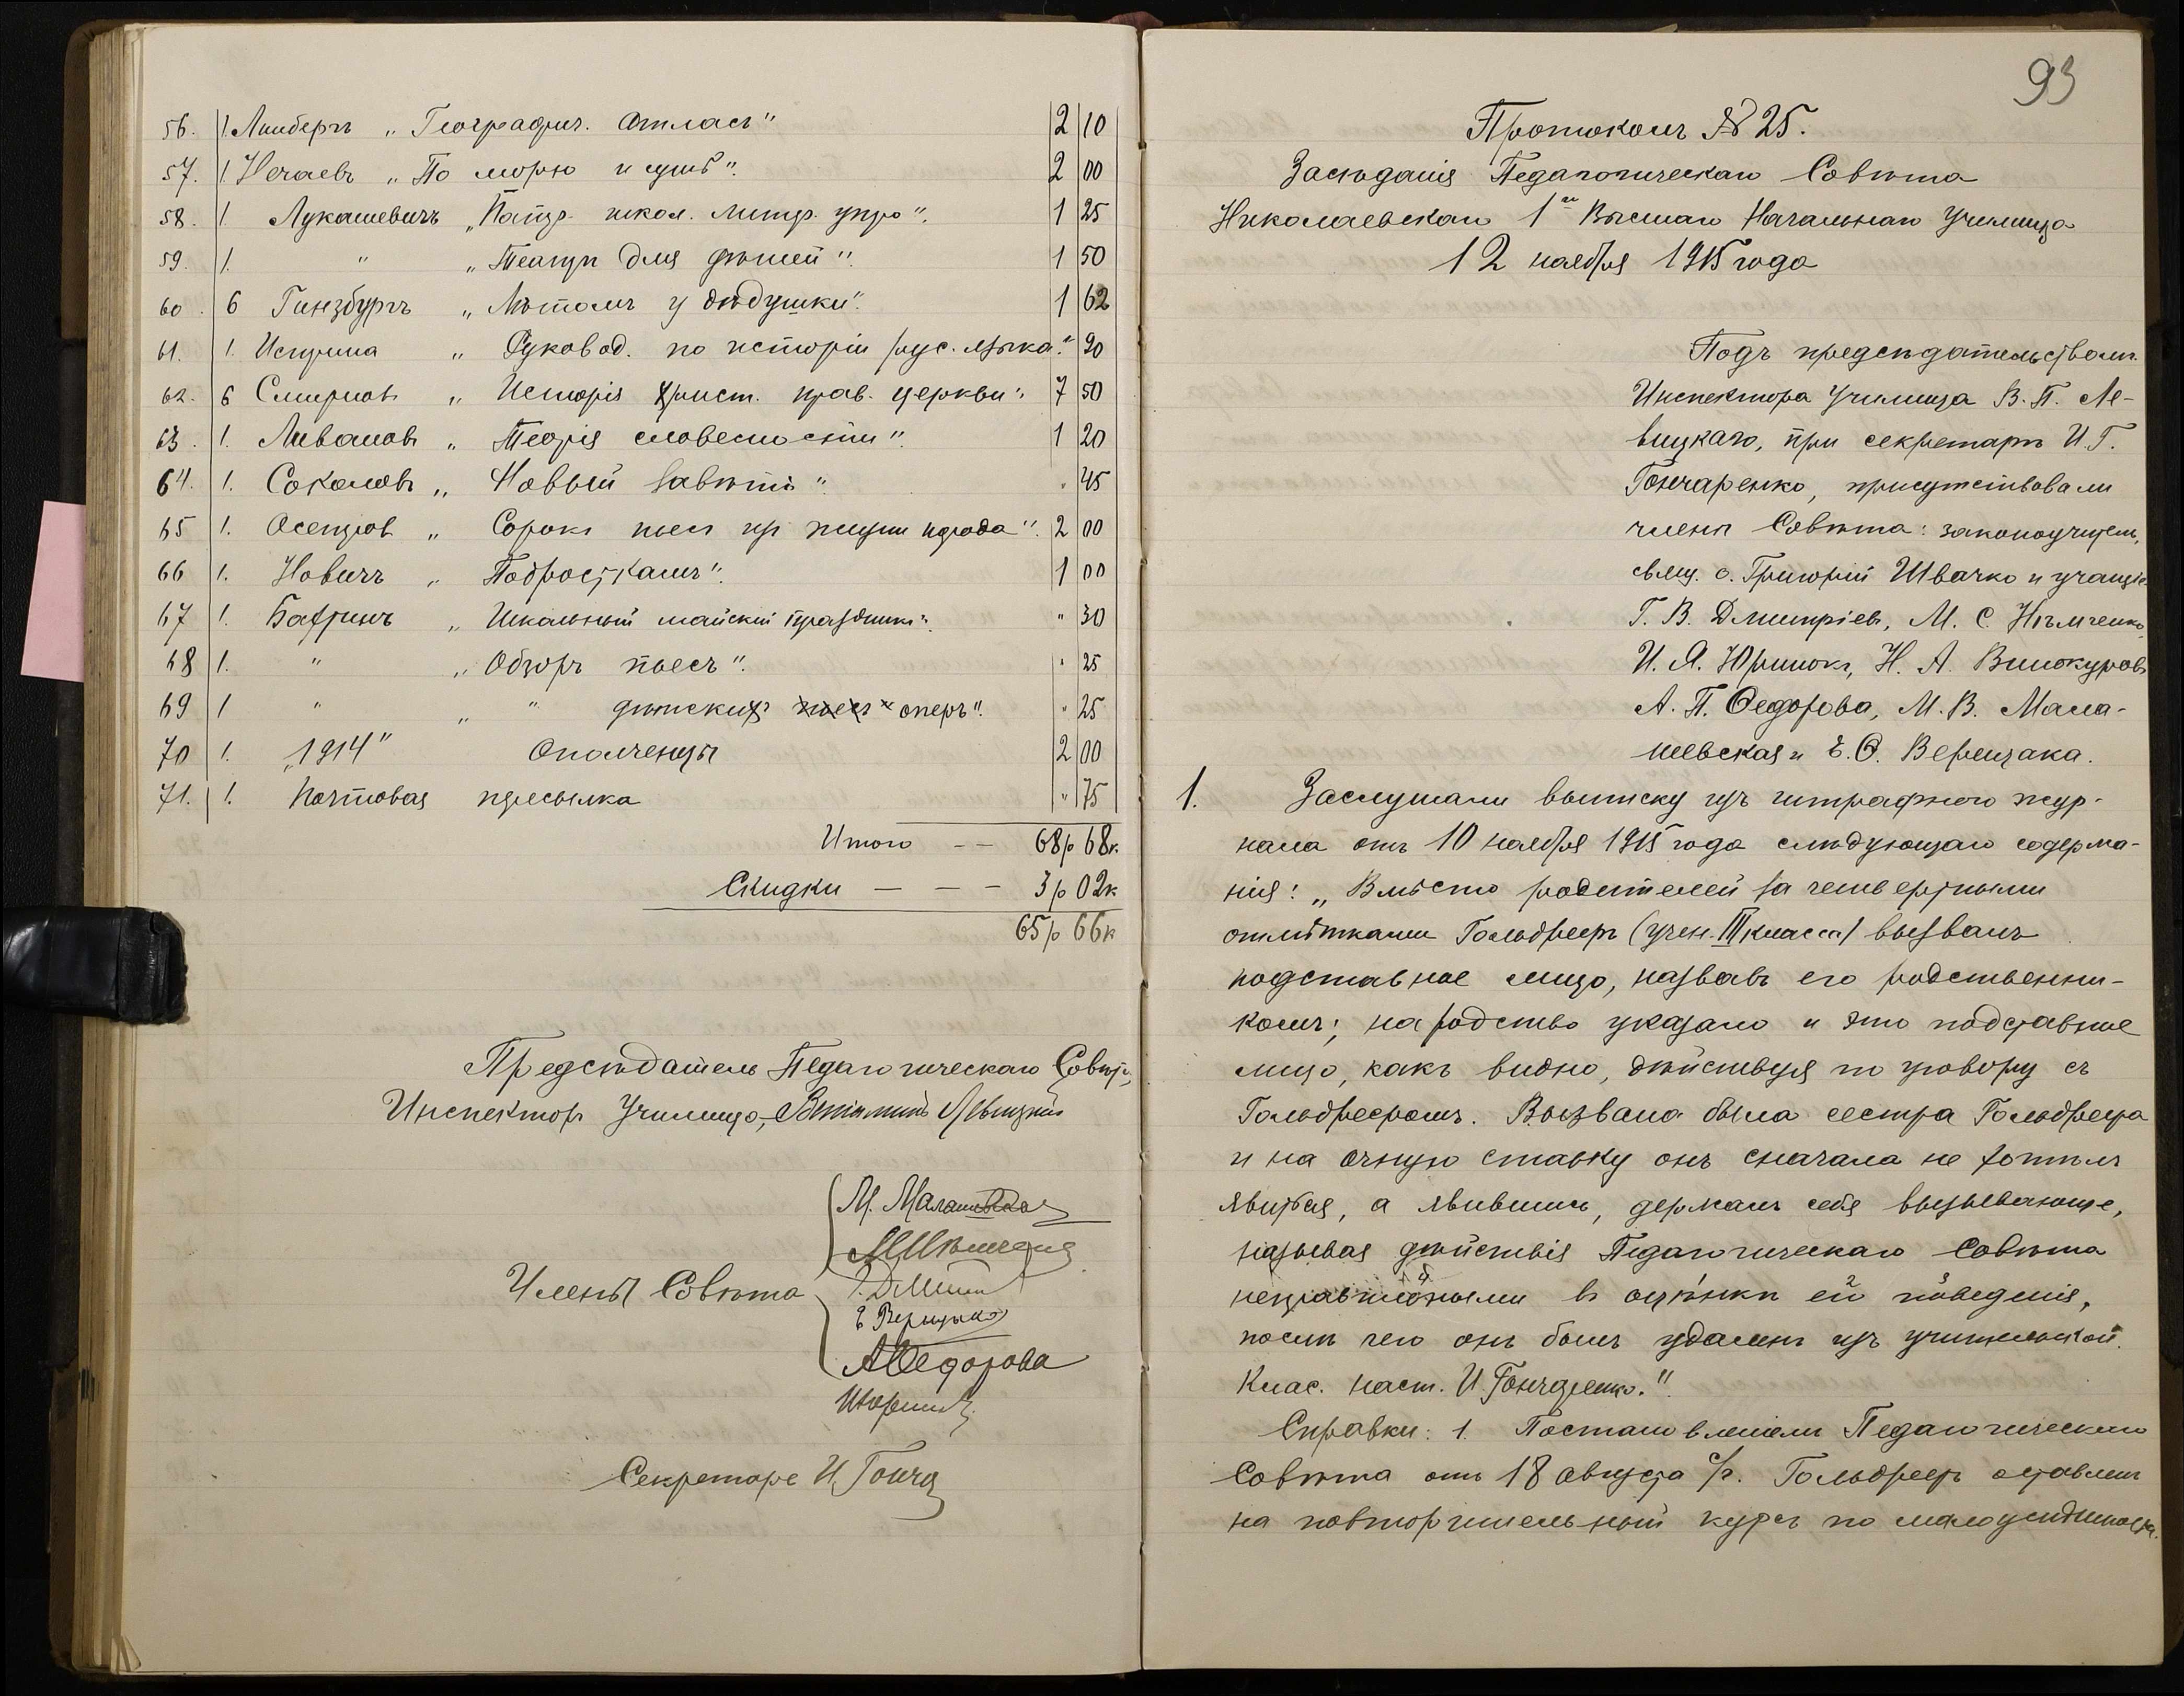 56. 1. Линдергъ „Географич. атласъ" 2 10
57. 1. Нечаевъ „По морю и сушѣ". 2 00
58. 1. Лукашевичъ школ. литер. утро". 1 25
59. 1. " „Театръ для дѣтей". 1 50
60. 6 Гинзбургъ „Лѣтомъ у дѣдушки". 1 62
61. 1. Истрина „Руковод. по исторіи рус. языка." 90
62. 6 Смирновъ „Исторія христ. прав. церкви". 7 50
63. 1. Ливановъ „Теорія словесности". 1 20
64. 1. Соколовъ „Новый завѣтъ". " 45
65 1. „Сорокъ пьес изъ жизни народа". 2 00
66 1. Новичъ „Подросткамъ". 1 00
67 1. „Школьный майскій праздникъ". " 30
68 1. " „Обзоръ пьесъ". " 25
69 1 " „ " дѣтскихъ пьесъ оперъ". " 25
70 1. „1914" Ополченцы 2 00
71. 1. Почтовая пересылка " 75
Итого -- 68р 68к.
Скидки — — – 3р 02к
65р 66к
Предсѣдатель Педагогическаго Совѣта,
Инспекторъ Училища, Левицкій
М. Маланевская
Члены Совѣта
Е Верещака
А Ѳедорова
Секретарь И Гонча
93
Протоколъ № 25.
Засѣданія Педагогическаго Совѣта
Николаевскаго 1го Высшаго Начальнаго Училища
12 ноября 1915 года
Подъ предсѣдательствомъ
Инспектора Училища В. П. Ле-
вицкаго, при секретарѣ И. Г.
Гончаренко, присутствовали
члены Совѣта: законоучитель,
свящ. о. Григорій Швачко и учащіе
Г. В. Дмитріевъ, М. С. Нѣмченко,
И. Я. Юринокъ, Н. А. Винокуровъ
А. П. Ѳедорова, М. В. Мала-
невская и Е. Ѳ. Верещака.
1. Заслушали выписку изъ штрафного жур-
нала отъ 10 ноября 1915 года слѣдующаго содержа-
нія: „Вмѣсто родителей за четвертными
отмѣтками Гольдрееръ (учен. III класса) вызвалъ
подставное лицо, назвавъ его родственни-
комъ; на родство указало и это подставное
лицо, какъ видно, дѣйствуя по уговору съ
Гольдрееромъ. Вызвана была сестра Гольдреера
и на очную ставку онъ сначала не хотѣлъ
явиться, а явившись, держалъ себя вызывающе,
называя дѣйствія Педагогическаго Совѣта
неправильными въ оцѣнкѣ его поведенія,
послѣ чего онъ былъ удаленъ изъ учительской.
Клас. наст. И. Гончаренко."
Справки: 1. Постановленіемъ Педагогическаго
Совѣта отъ 18 августа с/г. Гольдреер оставленъ
на повторительный курсъ по малоуспѣшности.